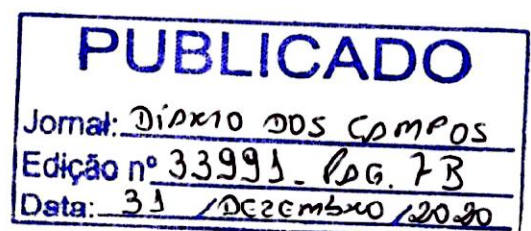 PUBLICADO
Jornal: DIÁRIO DOS CAMPOS
Edição nº 33991 - PÁG. 7B
Data: 31 / DEZEMBRO / 2020